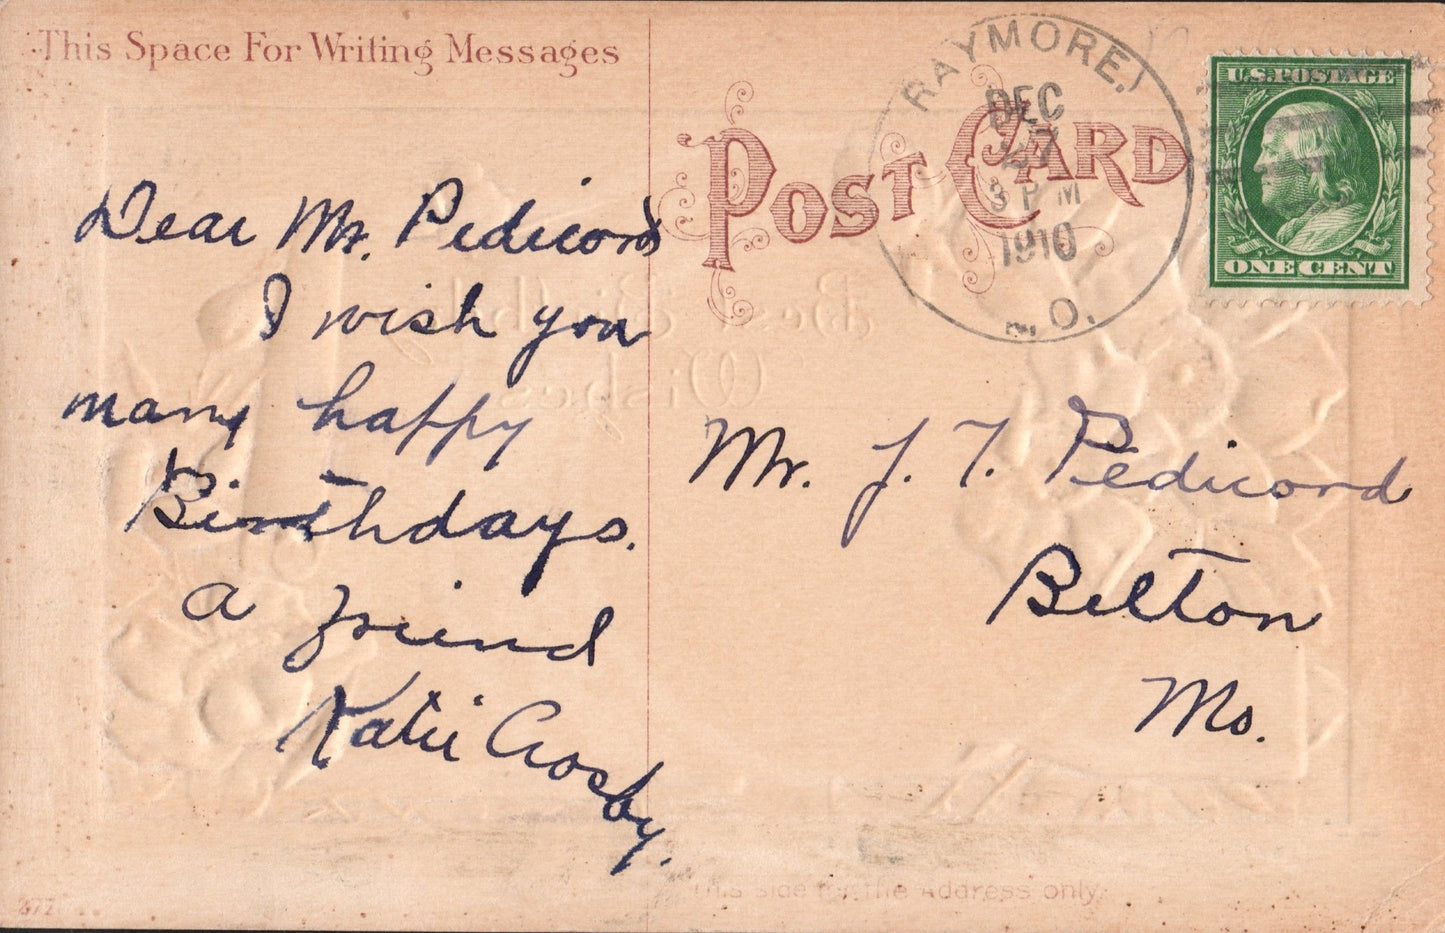 This Space For Writing Messages
POST CARD
RAYMORE,
DEC
27
3 PM
1910
MO.
U.S. POSTAGE
ONE CENT
Dear Mr. Pedicord
I wish you
many happy
Birthdays.
a friend
Katie Crosby.
Mr. J. T. Pedicord
Belton
Mo.
Best Birthday
Wishes
This side for the Address only
877